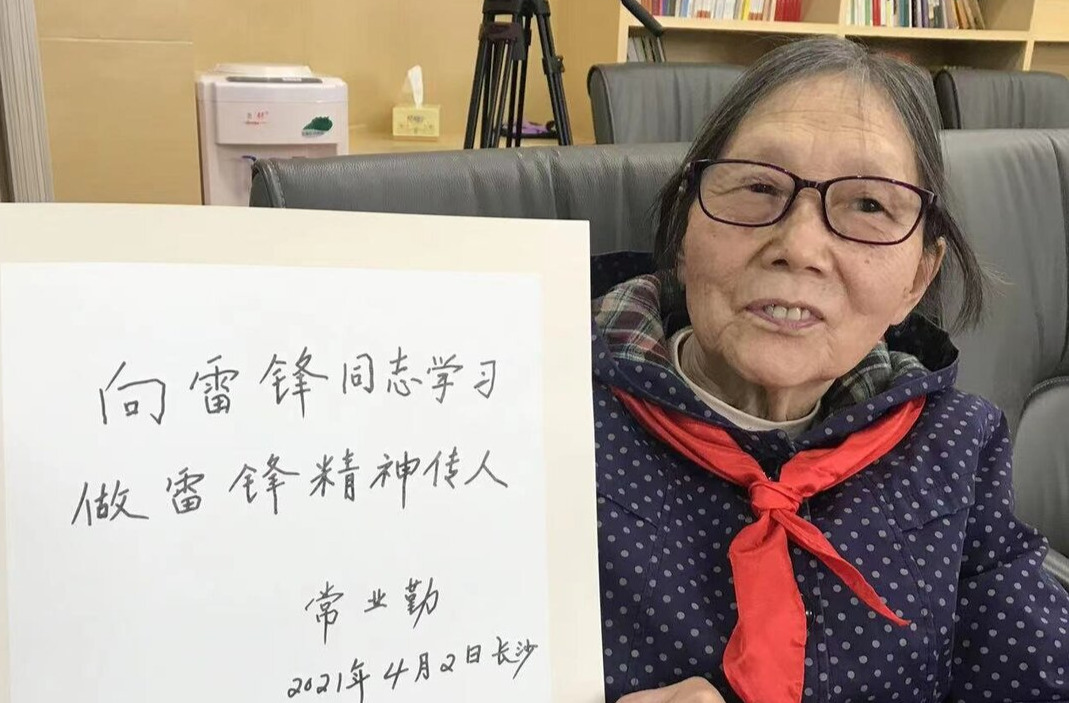 向雷锋同志学习
做雷锋精神传人
常业勤
2021年4月2日长沙